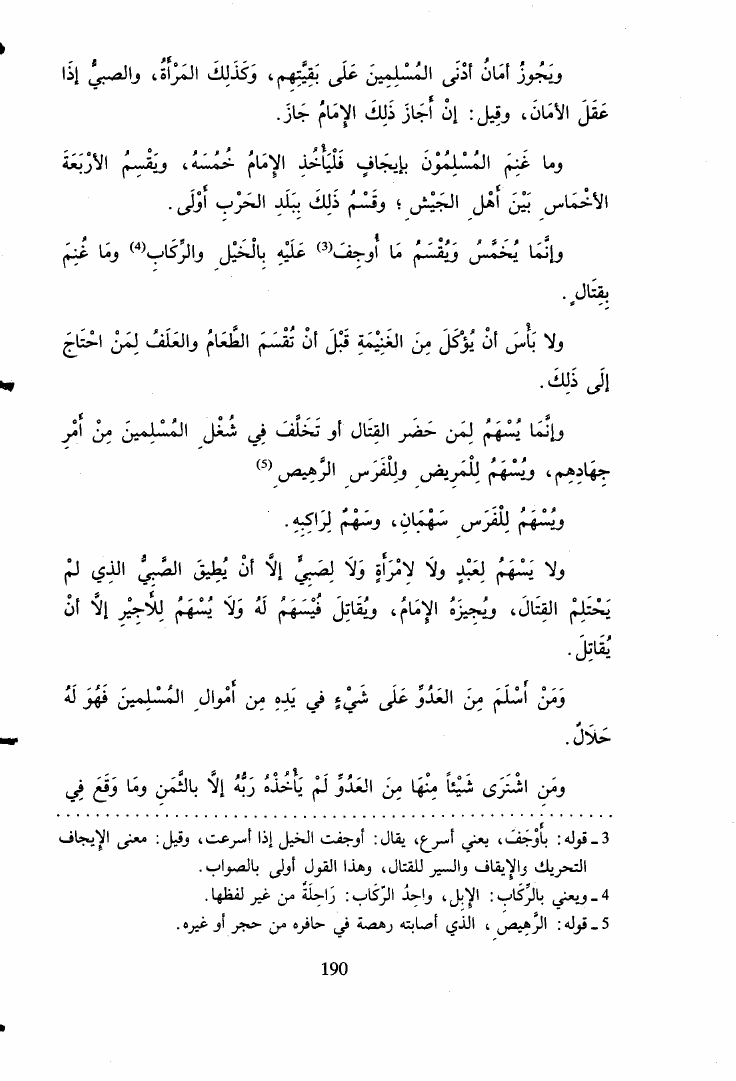 ويَجُوزُ أمَانُ أدْنَى المُسْلِمِينَ عَلَى بَقِيَّتِهِم، وَكَذَلِكَ المَرْأَةُ، والصبيُّ إذَا
عَقَلَ الأمَانَ، وقِيل: إنْ أجَازَ ذَلِكَ الإمَامُ جَازَ.
وما غَنِمَ المُسْلِمُوْنَ بإيجَافٍ فَلْيَأْخُذِ الإمَامُ خُمُسَهُ، ويَقْسِمُ الأرْبَعَةَ
الأخْمَاسِ بَيْنَ أهْلِ الجَيْشِ؛ وقَسْمُ ذَلِكَ بِبَلَدِ الحَرْبِ أوْلَى.
وإنَّمَا يُخَمَّسُ وَيُقْسَمُ مَا أُوجِفَ(3) عَلَيْهِ بِالْخَيْلِ والرِّكَابِ(4) ومَا غُنِمَ
بِقِتَالٍ.
ولا بَأْسَ أنْ يُؤْكَلَ مِنَ الغَنِيْمَةِ قَبْلَ أنْ تُقْسَمَ الطَّعَامُ والعَلَفُ لِمَنْ احْتَاجَ
إلَى ذَلِكَ.
وإنَّمَا يُسْهَمُ لِمَن حَضَر القِتَال أو تَخَلَّفَ فِي شُغْلِ المُسْلِمينَ مِنْ أَمْرِ
جِهَادِهِم، ويُسْهَمُ لِلْمَرِيضِ ولِلْفَرَسِ الرَّهِيصِ(5)
ويُسْهَمُ لِلْفَرَسِ سَهْمَانِ، وسَهْمٌ لِرَاكِبِهِ.
ولا يُسْهَمُ لِعَبْدٍ ولَا لِامْرَأةٍ وَلَا لِصَبِيٍّ إلَّا أنْ يُطِيقَ الصَّبِيُّ الذِي لمْ
يَحْتَلِمْ القِتَالَ، ويُجِيزَهُ الإمَامُ، ويُقَاتِلَ فَيُسْهَمُ لَهُ وَلَا يُسْهَمُ لِلْأجِيْرِ إلَّا أنْ
يُقَاتِلَ.
وَمَنْ أسْلَمَ مِنَ العَدُوِّ عَلَى شَيْءٍ في يَدِهِ مِن أمْوالِ المُسْلِمينَ فَهُوَ لَهُ
حَلَالٌ.
ومَن اشْتَرَى شَيْئاً مِنْهَا مِنَ العَدُوِّ لَمْ يَأْخُذْهُ رَبُّهُ إلَّا بالثَّمَنِ ومَا وَقَعَ فِي
3 ـ قوله: بأَوْجَفَ، يعني أسرع، يقال: أوجفت الخيل إذا أسرعت، وقيل: معنى الإيجاف
التحريك والإيقاف والسير للقتال، وهذا القول أولى بالصواب.
4 ـ ويعني بالرِّكَاب: الإِبل، واحِدُ الرّكَاب: رَاحِلَةٌ من غير لفظها.
5 ـ قوله: الرَّهِيصِ، الذي أصابته رهصة في حافره من حجر أو غيره.
190